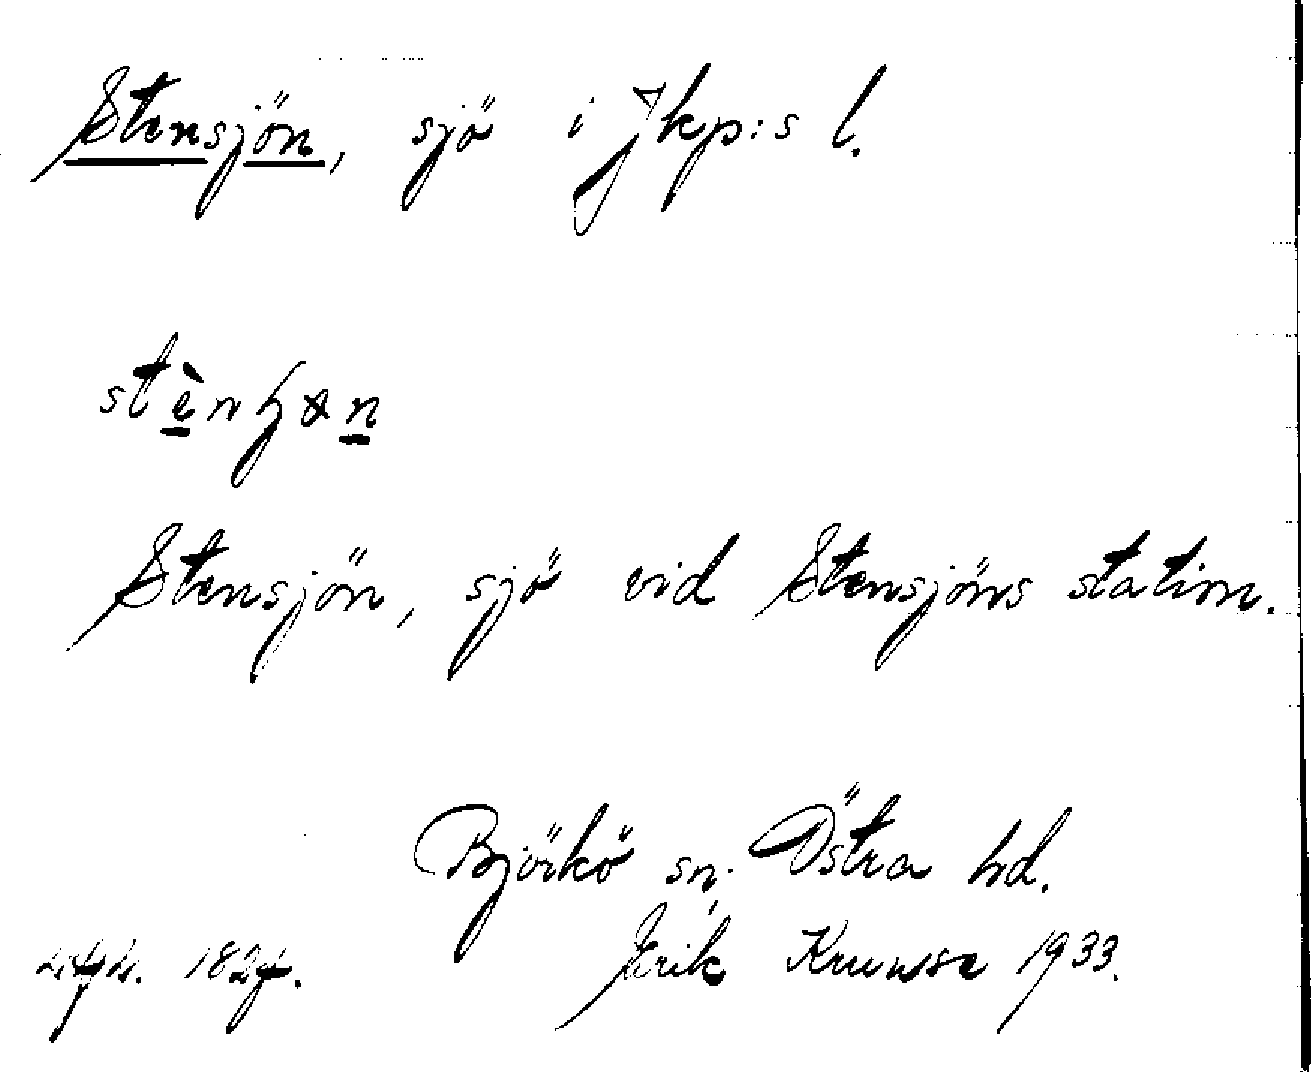 Stensjön, sjö i Jkp:s l.
stènɧɵn
Stensjön, sjö vid Stensjöns station.
Björkö sn. Östra hd.
1827. Erik Kruuse 1933.